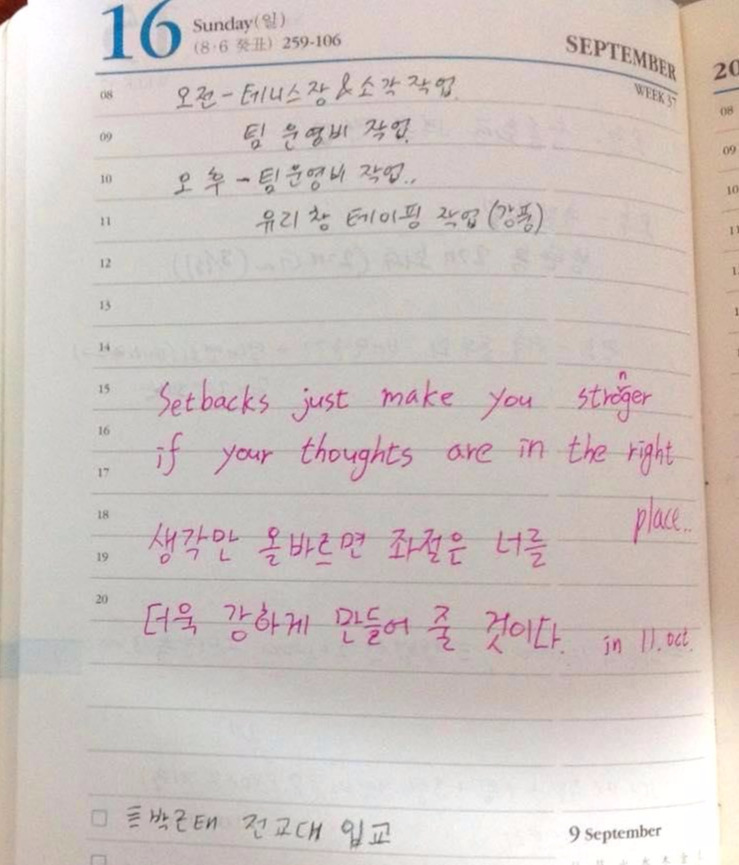 16 Sunday(일)
(8·6 癸丑) 259-106
SEPTEMBER
WEEK 37
20
08 오전-테니스장&소각작업.
09 팀 운영비 작업.
10 오후-팀운영비 작업..
11 유리창 테이핑 작업(강풍)
12
13
14
15 Setbacks just make you stronger
16 if your thoughts are in the right
17
place..
18 생각만 올바르면 좌절은 너를
19
20 더욱 강하게 만들어 줄 것이다. in 11.oct.
박근태 전교대 입교
9 September
08
09
10
11